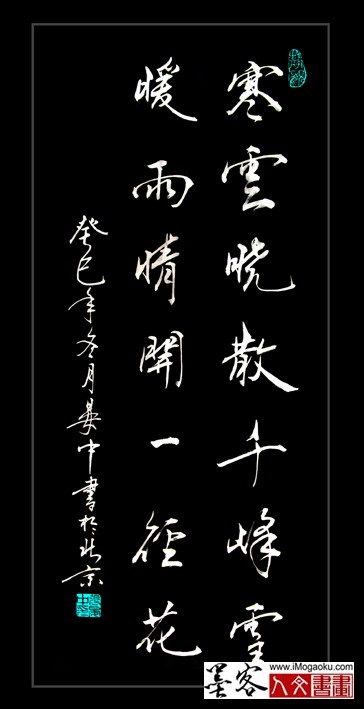 寒雲曉散千峰雪
暖雨晴開一徑花
癸巳年冬月晏中書於北京
墨客
www.iMogaoku.com
人文書畫